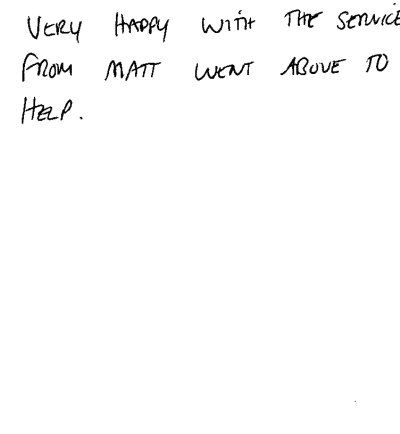 VERY HAPPY WITH THE SERVICE
FROM MATT WENT ABOVE TO
HELP.